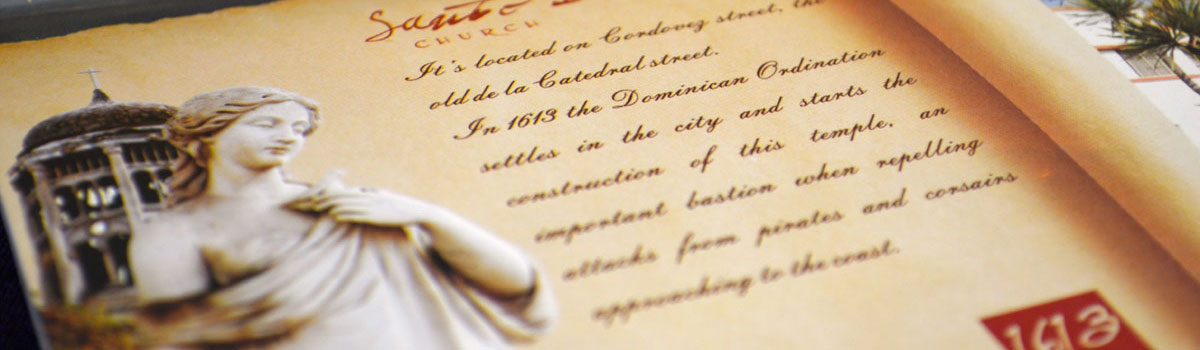 Santo
CHURCH
It's located on Cordovez street, the
old de la Catedral street.
In 1613 the Dominican Ordination
settles in the city and starts the
construction of this temple, an
important bastion when repelling
attacks from pirates and corsairs
approaching to the coast.
1613